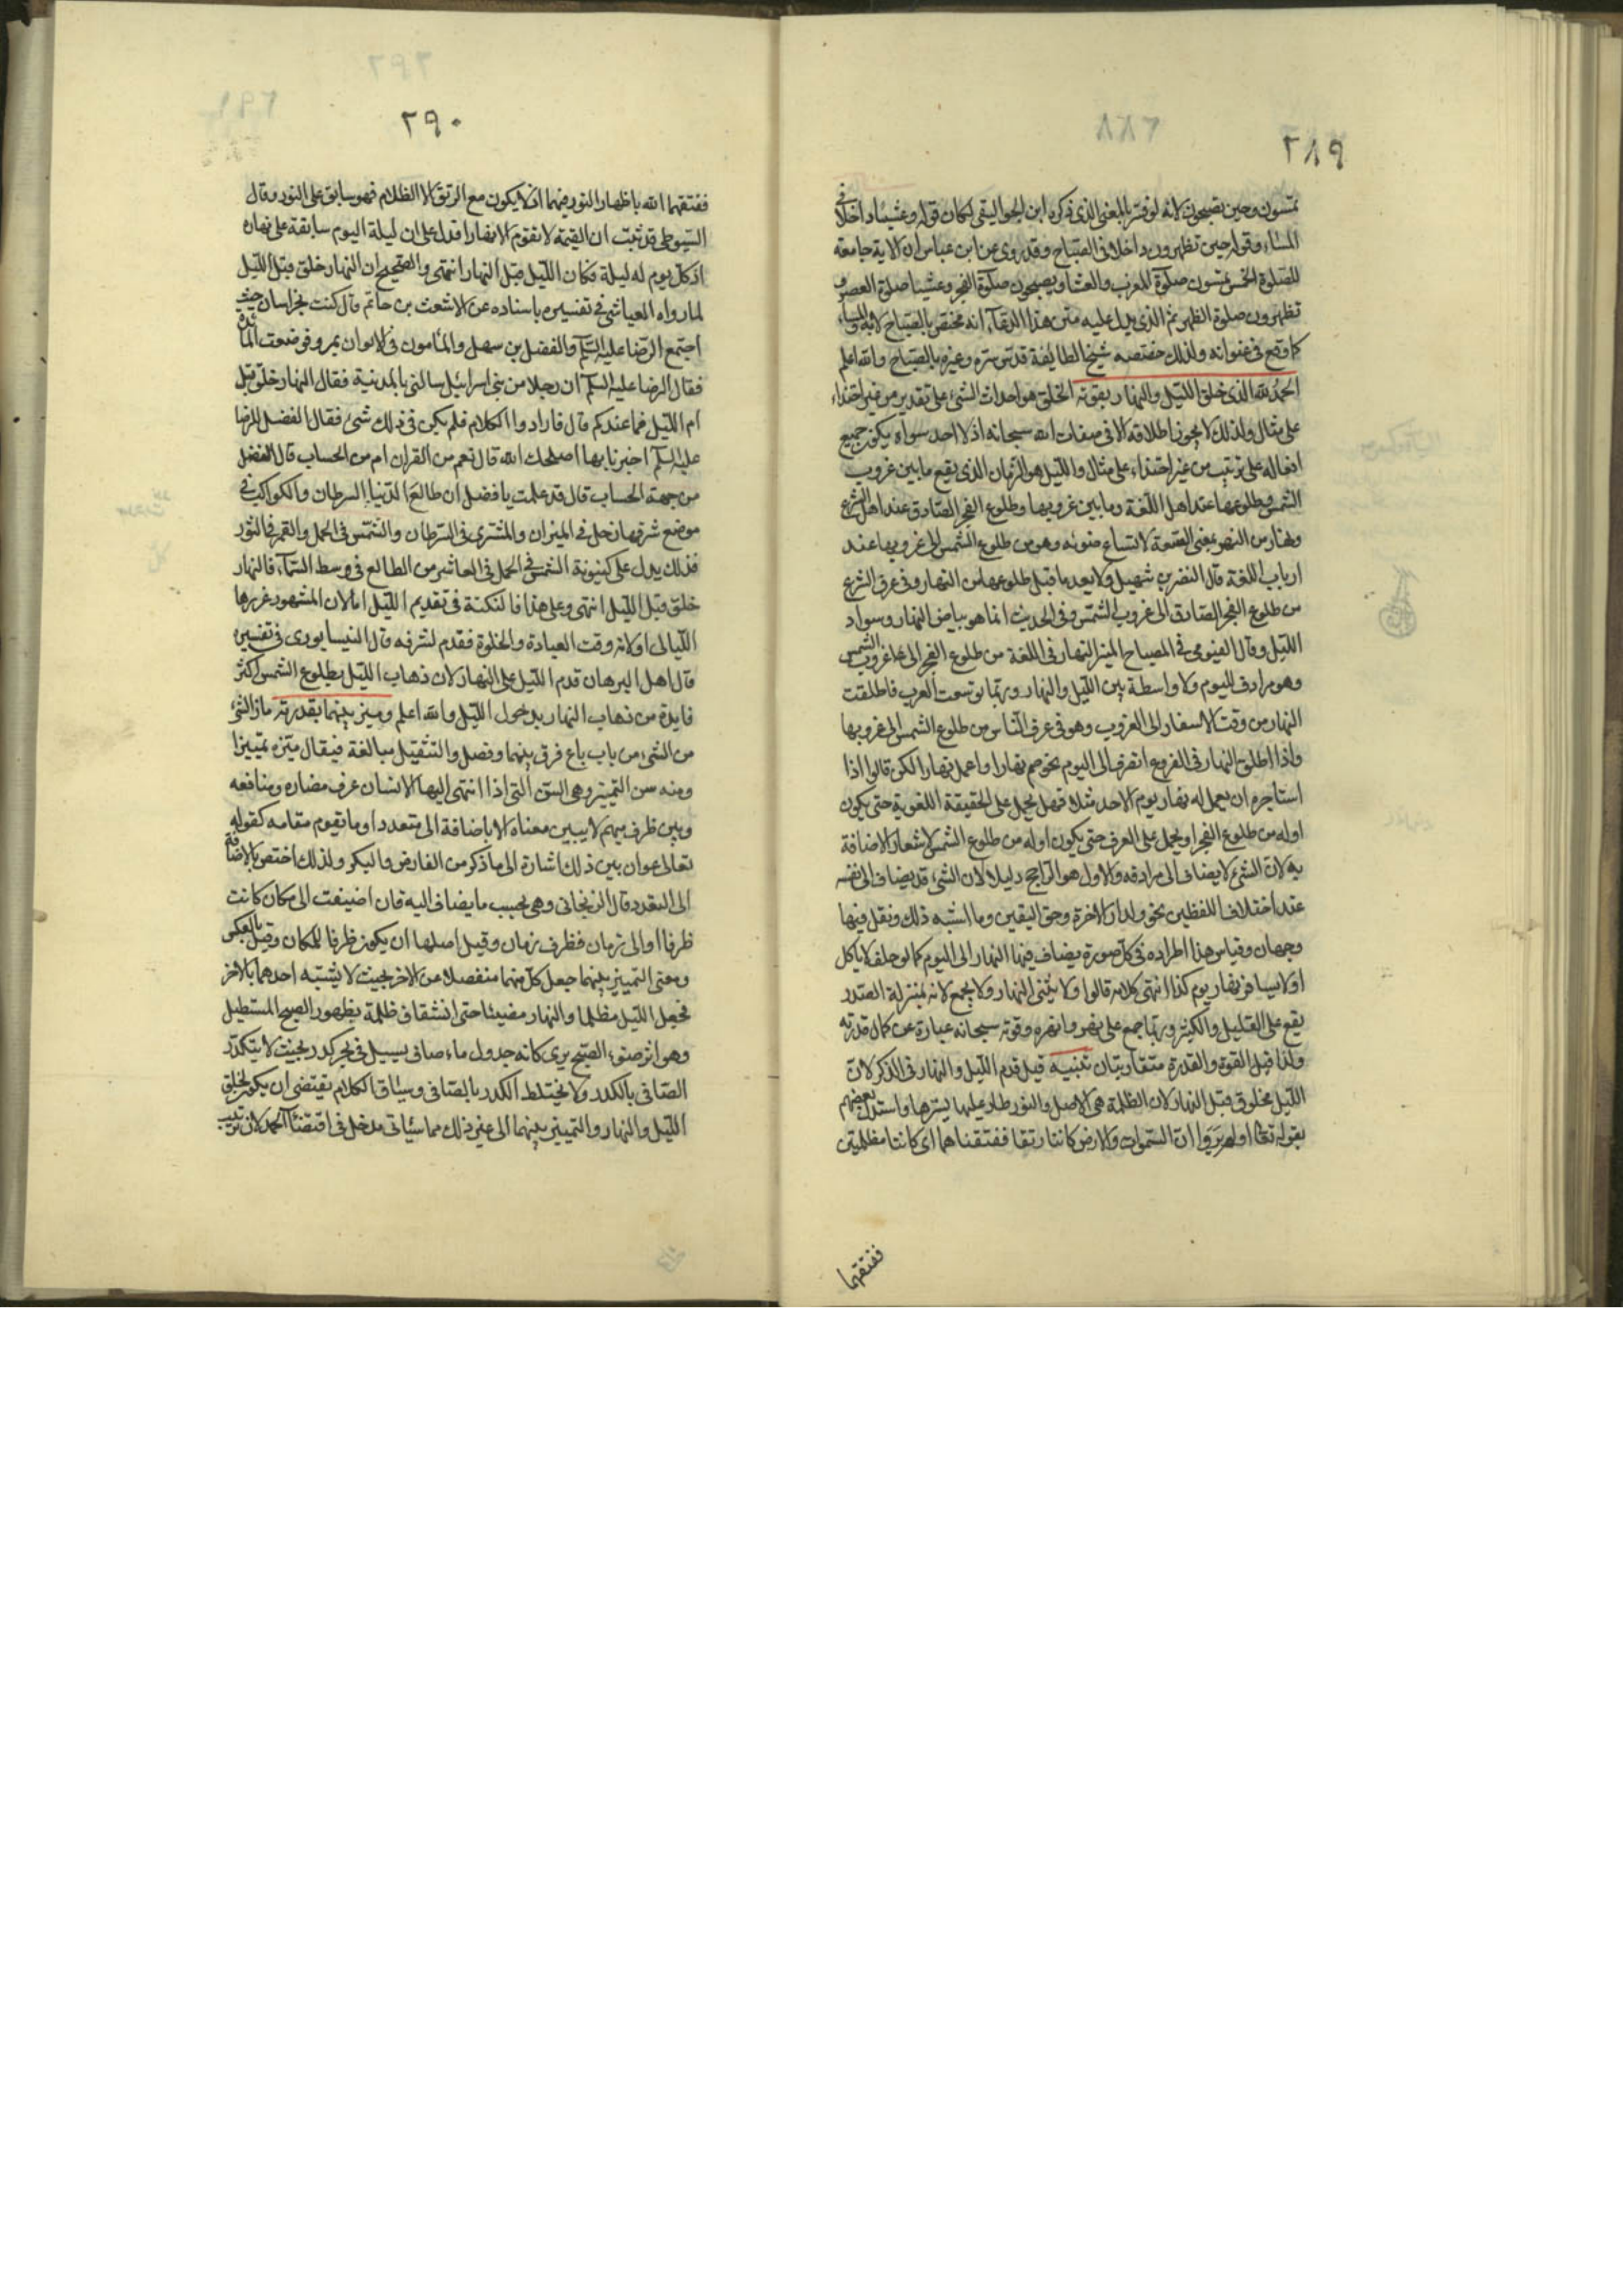 ٢٨٩
تمسون وحين تصبحون لانه لو فسر بالمعنى الذي ذكره ابن الجواليقي لكان قوله وعشيا داخلا في
المساء وقوله حين تظهرون داخلا في الصباح وقد روي عن ابن عباس ان الاية جامعة
للصلوة الخمس تمسون صلوة المغرب والعشا وتصبحون صلوة الفجر وعشيا صلوة العصر و
تظهرون صلوة الظهر ثم الذي يدل عليه متن هذا الدعآء انه مختص بالصباح لا به والمساء
كما وقع في عنوانه ولذلك خصصه شيخ الطايفة قدس سره وغيره بالصباح والله اعلم
الحمد لله الذي خلق الليل والنهار بقوته الخلق هو احداث الشيء على تقدير من غير احتذاء
على مثال ولذلك لا يجوز اطلاقه الا في صفات الله سبحانه اذ لا احد سواه يكون جميع
افعاله على ترتيب من غير احتذاء على مثال والليل هو الزمان الذي يقع ما بين غروب
الشمس وطلوعها عند اهل اللغة وما بين غروبها وطلوع الفجر الصادق عند اهل الشرع
ونهار من النهر بمعنى السعة لاتساع ضوئه وهو من طلوع الشمس الى غروبها عند
ارباب اللغة قال النضر بن شميل ولا يعد ما قبل طلوعها من النهار وفي عرف الشرع
من طلوع الفجر الصادق الى غروب الشمس وفي الحديث انما هو بياض النهار وسواد
الليل وقال الفيومي في المصباح المنير النهار في اللغة من طلوع الفجر الى غروب الشمس
وهو مرادف لليوم ولا واسطة بين الليل والنهار وربما توسعت العرب فاطلقت
النهار من وقت الاسفار الى الغروب وهو في عرف الناس من طلوع الشمس الى غروبها
واذا اطلق النهار في الفروع انصرف الى اليوم نحو صم نهارا او اعمل نهارا لكن قالوا اذا
استاجره ان يعمل له نهار يوم الاحد مثلا فهل يحمل على الحقيقة اللغوية حتى يكون
اوله من طلوع الفجر او يحمل على العرف حتى يكون اوله من طلوع الشمس لاشعار الاضافة
به لان الشيء لا يضاف الى مرادفه والاول هو الراجح دليلا لان الشيء قد يضاف الى نفسه
عند اختلاف اللفظين نحو ولدار الاخرة وحق اليقين وما اشبه ذلك ونقل فيها
وجهان وقياس هذا اطراده في كل صورة يضاف فيها النهار الى اليوم كما لو حلف لا ياكل
او لا يسافر نهار يوم كذا انتهى كلامه قالوا ولا يثنى النهار ولا يجمع لانه بمنزلة المصدر
يقع على القليل والكثير وربما جمع على نهر وانهره وقوته سبحانه عبارة عن كمال قدرته
ولذا قيل القوة والقدرة متقاربتان تنبيه قيل قدم الليل والنهار في الذكر لان
الليل مخلوق قبل النهار لان الظلمة هي الاصل والنور طار عليها يسترها واستدل بعضهم
بقوله تعالى اولم يروا ان السموات والارض كانتا رتقا ففتقناهما اي كانتا مظلمتين
ففتقهما
٢٩٠
ففتقهما الله باظهار النور فيهما اذ لا يكون مع الرتق الا الظلام فهو سابق على النور وقال
السيوطي قد ثبت ان القيمة لا تقوم الا نهارا فدل على ان ليلة اليوم سابقة على نهاره
اذ كل يوم له ليلة فكان الليل قبل النهار انتهى والصحيح ان النهار خلق قبل الليل
لما رواه العياشي في تفسيره باسناده عن الاشعث بن حاتم قال كنت بخراسان حيث
اجتمع الرضا عليه السلم والفضل بن سهل والمأمون في الايوان بمرو فوضعت المائدة
فقال الرضا عليه السلم ان رجلا من بني اسرائيل سالني بالمدنية فقال النهار خلق قبل
ام الليل فما عندكم قال فارادوا الكلام فلم يكن في ذلك شئ فقال الفضل للرضا
عليه السلم اخبرنا بها اصلحك الله قال نعم من القران ام من الحساب قال الفضل
من جهة الحساب قال قد علمت يا فضل ان طالع الدنيا السرطان والكواكب في
موضع شرفها زحل في الميزان والمشتري في السرطان والشمس في الحمل والقمر في الثور
فذلك يدل على كينونة الشمس في الحمل في العاشر من الطالع في وسط السمآء فالنهار
خلق قبل الليل انتهى وعلى هذا فالنكتة في تقديم الليل اما لان المشهور غررها
الليالي او لانه وقت العبادة والخلوة فقدم لشرفه قال النيسابوري في تفسيره
قال اهل البرهان قدم الليل على النهار لان ذهاب الليل بطلوع الشمس اكثر
فايدة من ذهاب النهار بدخول الليل والله اعلم وميز بينهما بقدرته ماز الشيء
من الشيء من باب باع فرق بينهما وفصل والتثقيل مبالغة فيقال ميزه تمييزا
ومنه سن التمييز وهي السن التي اذا انتهى اليها الانسان عرف مضاره ومنافعه
وبين ظرف مبهم لا يبين معناه الا باضافة الى متعدد او ما يقوم مقامه كقوله
تعالى عوان بين ذلك اشارة الى ما ذكر من الفارض والبكر ولذلك اختص بالاضافة
الى المتعدد قال الزنجاني وهي بحسب ما يضاف اليه فان اضيفت الى مكان كانت
ظرفا او الى زمان فظرف زمان وقيل اصلها ان يكون ظرفا للمكان وقيل بالعكس
ومعنى التمييز بينهما جعل كل منهما منفصلا عن الاخر بحيث لا يشتبه احدهما بالاخر
فجعل الليل مظلما والنهار مضيئا حتى انشقاق ظلمة بظهور الصبح المستطيل
وهو اثر ضوء الصبح يرى كانه جدول ماء صافي يسيل في بحر كدر بحيث لا يتكدر
الصافي بالكدر ولا يختلط الكدر بالصافي وسياق الكلام يقتضي ان يكون لخلق
الليل والنهار والتمييز بينهما الى غير ذلك مما سيأتي مدخل في اقتضاء الحمد لان ترتيب